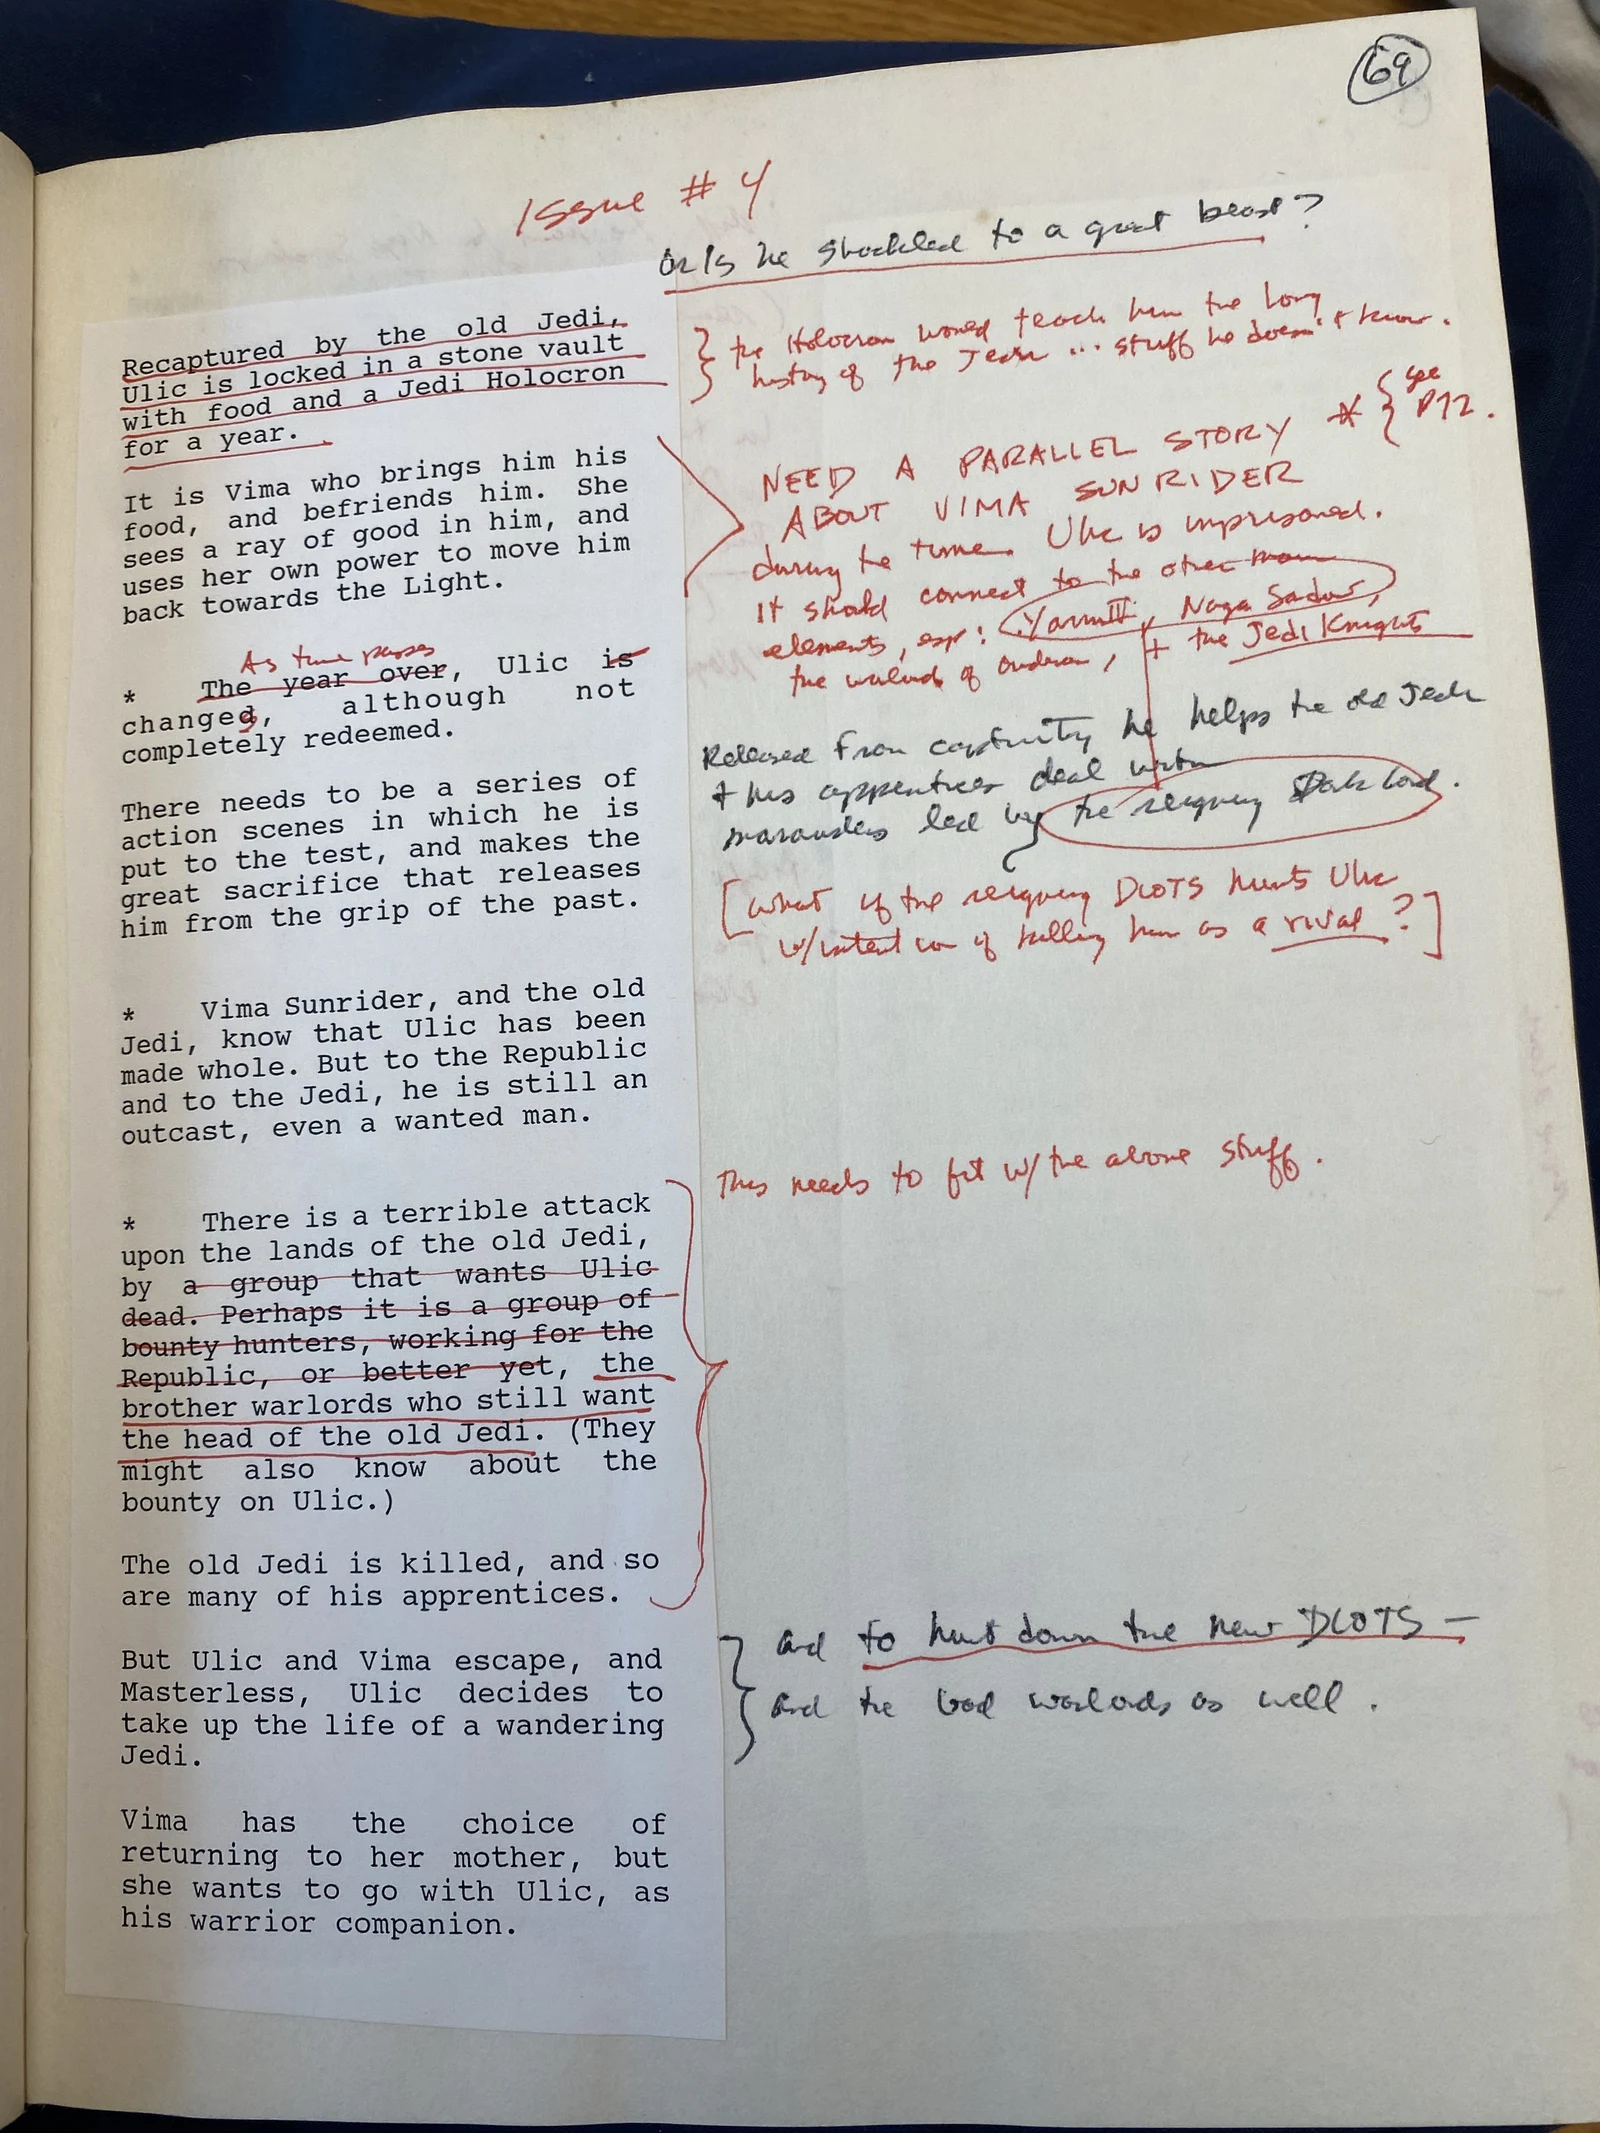 69
Issue # 4
or is he shackled to a great beast?
Recaptured by the old Jedi,
Ulic is locked in a stone vault
with food and a Jedi Holocron
for a year.
the Holocron would teach him the long
history of the Jedi ... stuff he doesn't know.
It is Vima who brings him his
food, and befriends him. She
sees a ray of good in him, and
uses her own power to move him
back towards the Light.
NEED A PARALLEL STORY * { see
P72.
ABOUT VIMA SUNRIDER
during the time Ulic is imprisoned.
It should connect to the other main
elements, esp: Yavin IV, Naga Sadow,
the warlords of Onderon, + the Jedi Knights
As time passes
* The year over, Ulic is
changes, although not
completely redeemed.
Released from captivity he helps the old Jedi
+ his apprentices deal with
marauders led by the reigning Dark Lord.
There needs to be a series of
action scenes in which he is
put to the test, and makes the
great sacrifice that releases
him from the grip of the past.
[what if the reigning DLOTS hunts Ulic
w/intention of killing him as a rival?]
* Vima Sunrider, and the old
Jedi, know that Ulic has been
made whole. But to the Republic
and to the Jedi, he is still an
outcast, even a wanted man.
This needs to fit w/the above stuff.
* There is a terrible attack
upon the lands of the old Jedi,
by a group that wants Ulic
dead. Perhaps it is a group of
bounty hunters, working for the
Republic, or better yet, the
brother warlords who still want
the head of the old Jedi. (They
might also know about the
bounty on Ulic.)
The old Jedi is killed, and so
are many of his apprentices.
But Ulic and Vima escape, and
Masterless, Ulic decides to
take up the life of a wandering
Jedi.
and to hunt down the new DLOTS —
and the bad warlords as well.
Vima has the choice of
returning to her mother, but
she wants to go with Ulic, as
his warrior companion.